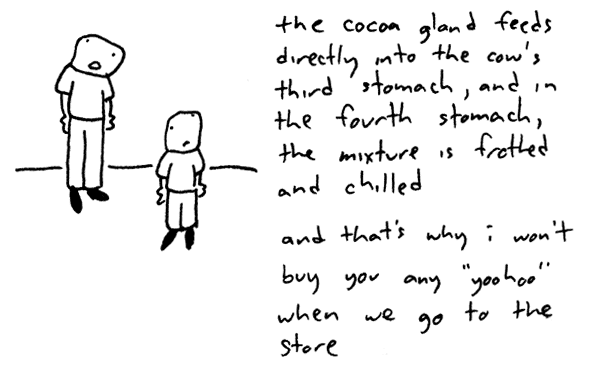 the cocoa gland feeds
directly into the cow's
third stomach, and in
the fourth stomach,
the mixture is frothed
and chilled
and that's why i won't
buy you any "yoohoo"
when we go to the
store